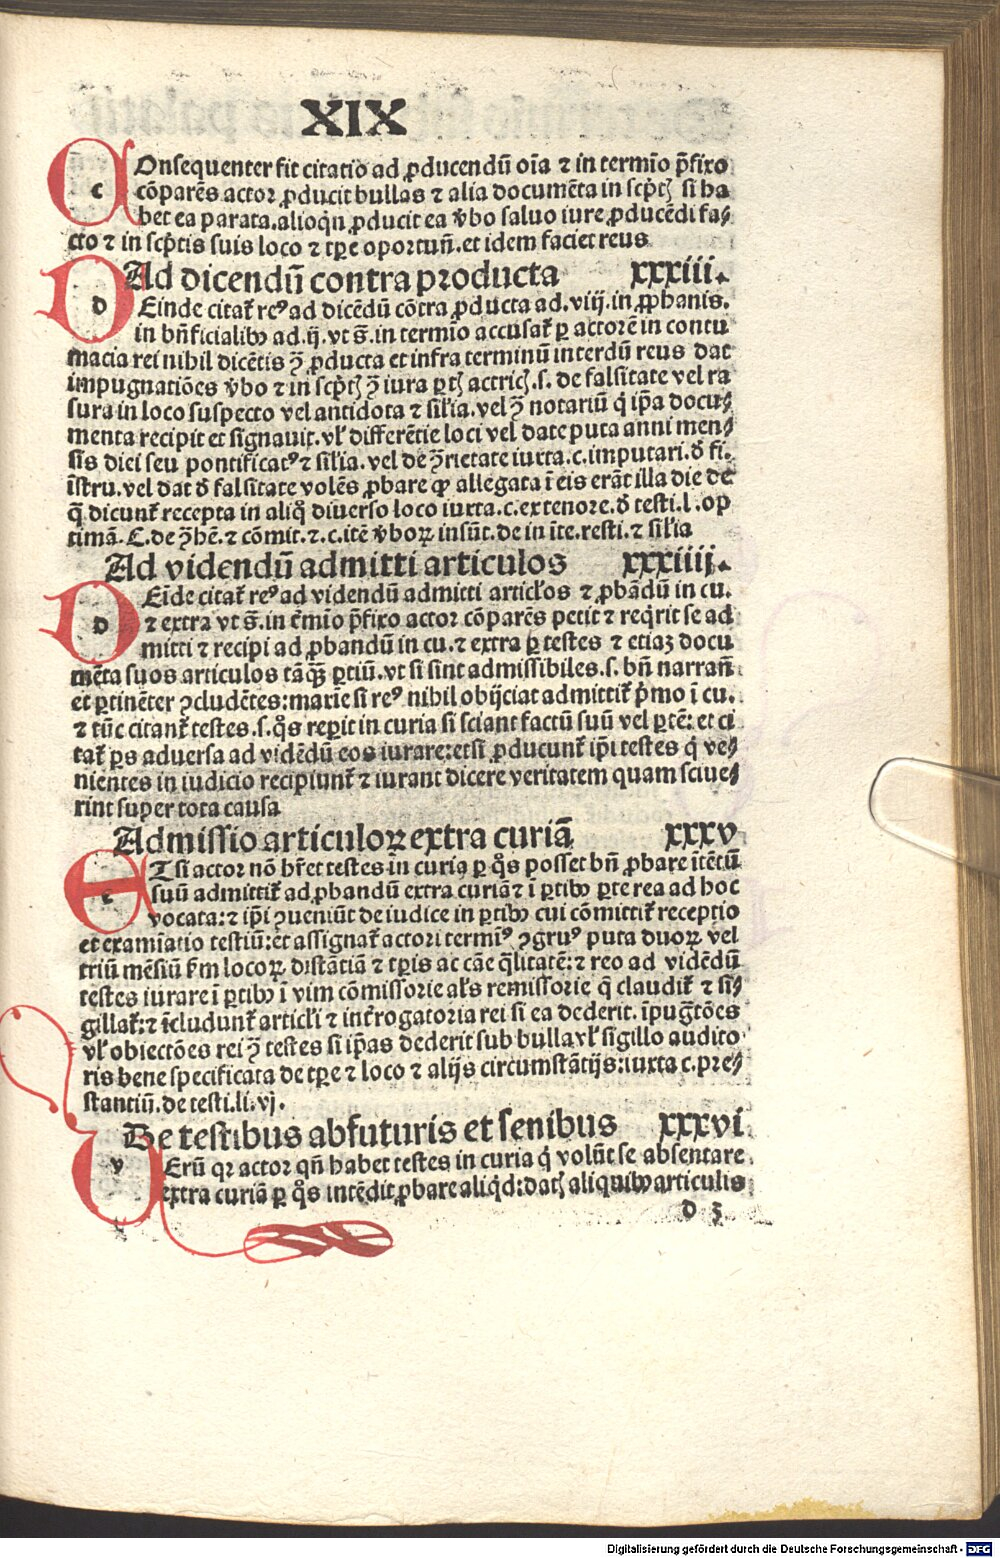 XIX
COnsequenter fit citatio ad ꝓducendū oīa ⁊ in termīo p̄fixo
cōparēs actor ꝓducit bullas ⁊ alia documēta in scp̄tꝭ si ha
bet ea parata. alioqn̄ ꝓducit ea v̄bo saluo iure ꝓducēdi fa⸗
cto ⁊ in scp̄tis suis loco ⁊ tp̄e oportun̄. et idem faciet reus
Ad dicendū contra producta xxxiii.
DEinde citat᷑ reꝰ ad dicēdū cōtra ꝓducta ad. viij. in ꝓphanis.
in bn̄ficialibꝰ ad. ij. vt s̄. in termīo accusat᷑ ꝑ actorē in contu
macia rei nihil dicētis ꝯ̄ ꝓducta et infra terminū interdū reus dat
impugnatiōes v̄bo ⁊ in scp̄tꝭ ꝯ̄ iura ꝑtꝭ actricꝭ. s. de falsitate vel ra
sura in loco suspecto vel antidota ⁊ sil'ia. vel ꝯ̄ notariū q̇ ip̄a docu⸗
menta recipit et signauit. vl' differētie loci vel date puta anni men⸗
sis diei seu pontificatꝰ ⁊ sil'ia. vel de ꝯ̄rietate iuxta. c. imputari. d̄ fi.
īstru. vel dat d̄ falsitate volēs ꝓbare ꝙ allegata ī eis erāt illa die de
q̄ dicunt᷑ recepta in aliq̊ diuerso loco iuxta. c. ex tenore. d̄ testi. l. op
timā. C. de ꝯ̄hē. ⁊ cōmit. ⁊ c. itē v̄boꝝ insūt. de in īte. resti. ⁊ sil'ia
Ad videndū admitti articulos xxxiiij.
DEīde citat᷑ reꝰ ad videndū admitti articl'os ⁊ ꝓbādū in cu.
⁊ extra vt s̄. in t᷑mīo p̄fixo actor cōparēs petit ⁊ req̇rit se ad
mitti ⁊ recipi ad ꝓbandū in cu. ⁊ extra ꝑ testes ⁊ etiaꝫ docu
mēta suos articulos tāꝗꝫ ꝑtiū. vt si sint admissibiles. s. bn̄ narran̄
et ꝑtinēter ꝯcludētes: maxīe si reꝰ nihil obijciat admittit᷑ p̄mo ī cu.
⁊ tūc citant᷑ testes. s. q̊s reꝑit in curia si sciant factū suū vel ꝑtē: et ci
tat᷑ ꝑs aduersa ad vidēdū eos iurare: et si ꝓducunt᷑ ip̄i testes q̇ ve⸗
nientes in iudicio recipiunt᷑ ⁊ iurant dicere veritatem quam sciue⸗
rint super tota causa
Admissio articuloꝝ extra curiā xxxv
ETsi actor nō hr̄et testes in curia ꝑ q̊s posset bn̄ ꝓbare ītētiū
suū admittit᷑ ad ꝓbandū extra curiā ⁊ ī ꝑtibꝰ ꝑte rea ad hoc
vocata: ⁊ ip̄i ꝯueniūt de iudice in ꝑtibꝰ cui cōmittit᷑ receptio
et examīatio testiū: et assignat᷑ actori termīꝰ ꝯgruꝰ puta duoꝝ vel
triū mēsiū fm locoꝝ distātiā ⁊ tp̄is ac cāe q̄litatē: ⁊ reo ad vidēdū
testes iurare ī ꝑtibꝰ ī vim cōmissorie al's remissorie q̄ claudit᷑ ⁊ si⸗
gillat᷑: ⁊ īcludunt᷑ articl'i ⁊ int᷑rogatoria rei si ea dederit. īpugtōes
vl' obiectōes rei ꝯ̄ testes si ip̄as dederit sub bulla vl' sigillo audito
ris bene specificata de tp̄e ⁊ loco ⁊ alijs circumstātijs: iuxta c. pre⸗
stantiū. de testi. li. vj.
De testibus abfuturis et senibus xxxvi
VErū qr actor qn̄ habet testes in curia q̇ volūt se absentare
extra curiā ꝑ q̊s intēdit ꝓbare aliq̇d: datꝭ aliquibꝰ articulis
d 3
Digitalisierung gefördert durch die Deutsche Forschungsgemeinschaft - DFG